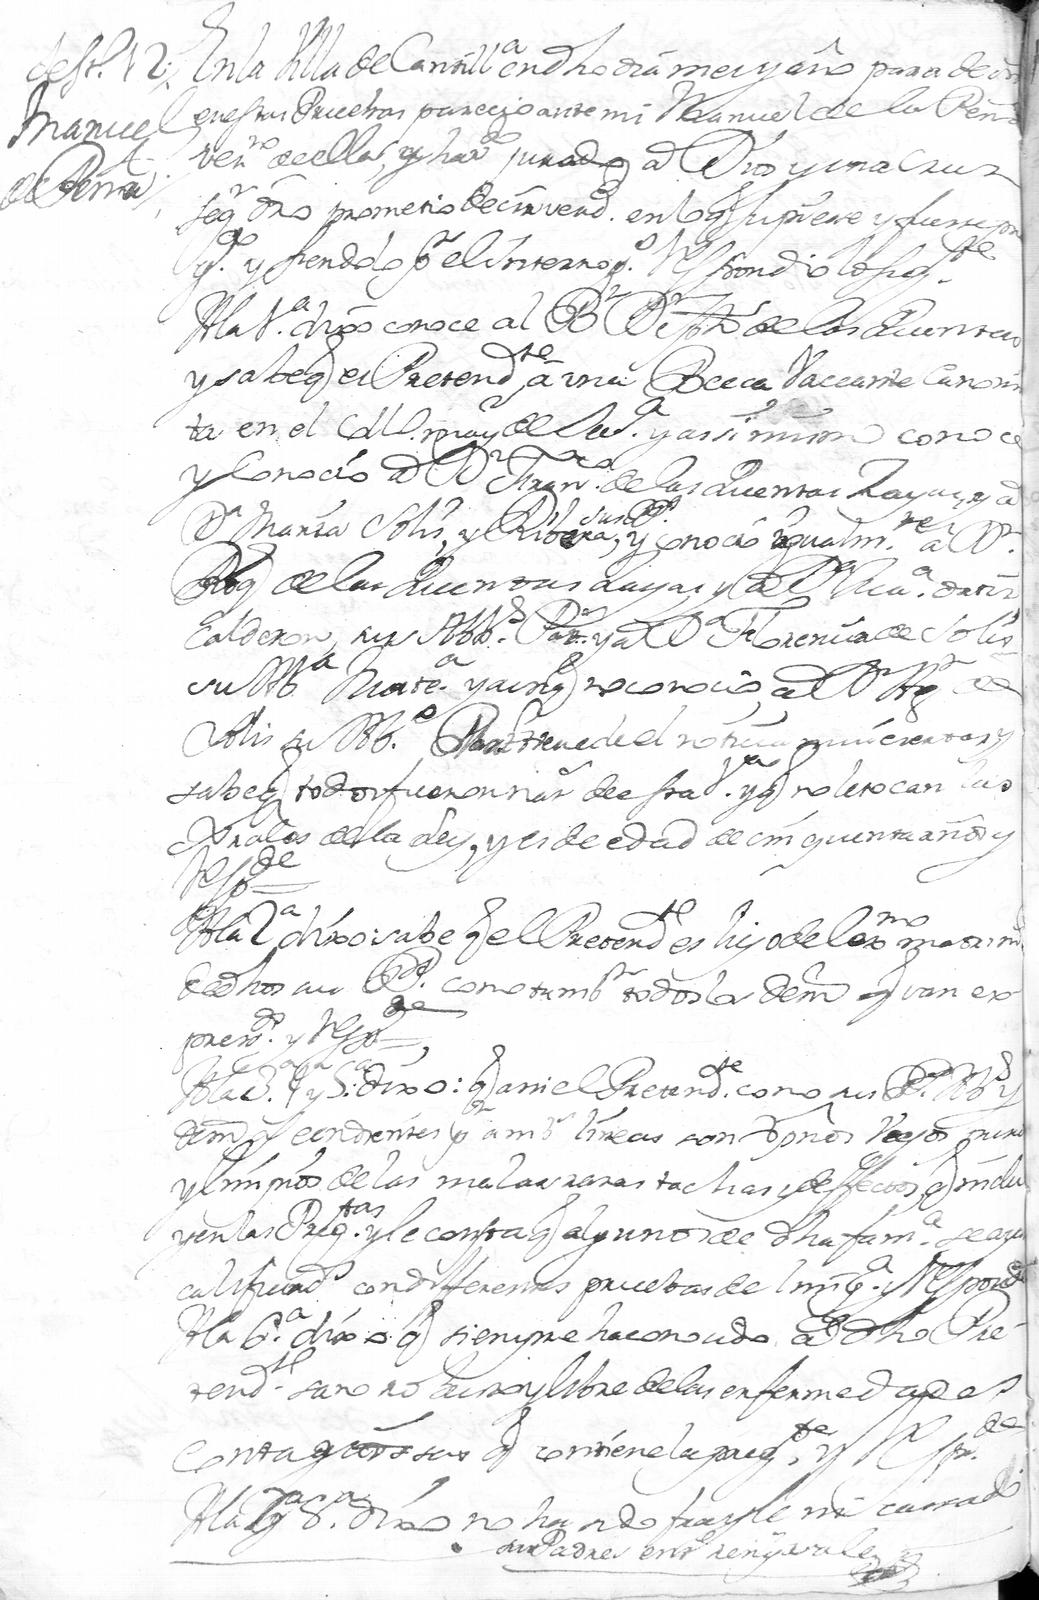 test.º 12
Manuel
de la Peña
En la Villa de Cantill.ª en dho dia mes y año para
en estas Pruebas parecio ante mi Manuel de la Peña
vez.no de ella, y hav.do jurado a Dios y una Cruz
seg.n dro prometio decir verd. en lo q supiere y fuere preg
g.do y siendolo p.r el Interrog.o Respondio lo sig.te
A la 1.ª dixo conoce al B.r D.n de las Quentas
y sabe q es Pretend.te â una Becca Vaccante Canonis
ta en el Coll. may.r de y assimismo conoce
y Conocio a D.n Fran.co de las Quentas Zayas, y a
D.ª Maria Solis, y Ribera, sus P.s y conocio igualm.te a D.n
Rod de las Quentas Zayas y a D.ª
Calderon, sus Abb.s Pat.s y a D.ª Florencia de Solis
su Abb.ª Mate.ª y aunq no conocio, a D.n de
Solis su Abb.o tiene de el noticia mui cierta y
sabe q todos fueron nat.s de esta V.ª y q no le tocan las
Grales de la Ley, y es de edad de cinquenta años y
Resp.de
A la 2.ª dixo: sabe q el Pretend.te es hijo de lex.mo matrim
de dhos sus P.s como tamb.n todos los dem.s q van ex-
pres.dos y Resp.de
A la 3.ª 4.ª y 5.ª dixo: q assi el Pretend.te como sus P.s Abb.s y
dem.s ascendientes p.r amb.s lineas son xpnos Viejos
y limpios de las malas razas tachas y defectos q inclu
yen las Preg.tas y le consta q algunos de dha fam.ª se
calificad.s con differentes pruebas de limp.ª y Respond.
A la 6.ª dixo q siempre ha conocido a dho Pre-
tend.te sano robusto y libre de las enfermedades
contagiosas q contiene la preg.ta y Resp.de
A la 7.ª y 8.ª dixo no ha sido frayle ni cassado
sus Padres ent.e reng.s vale